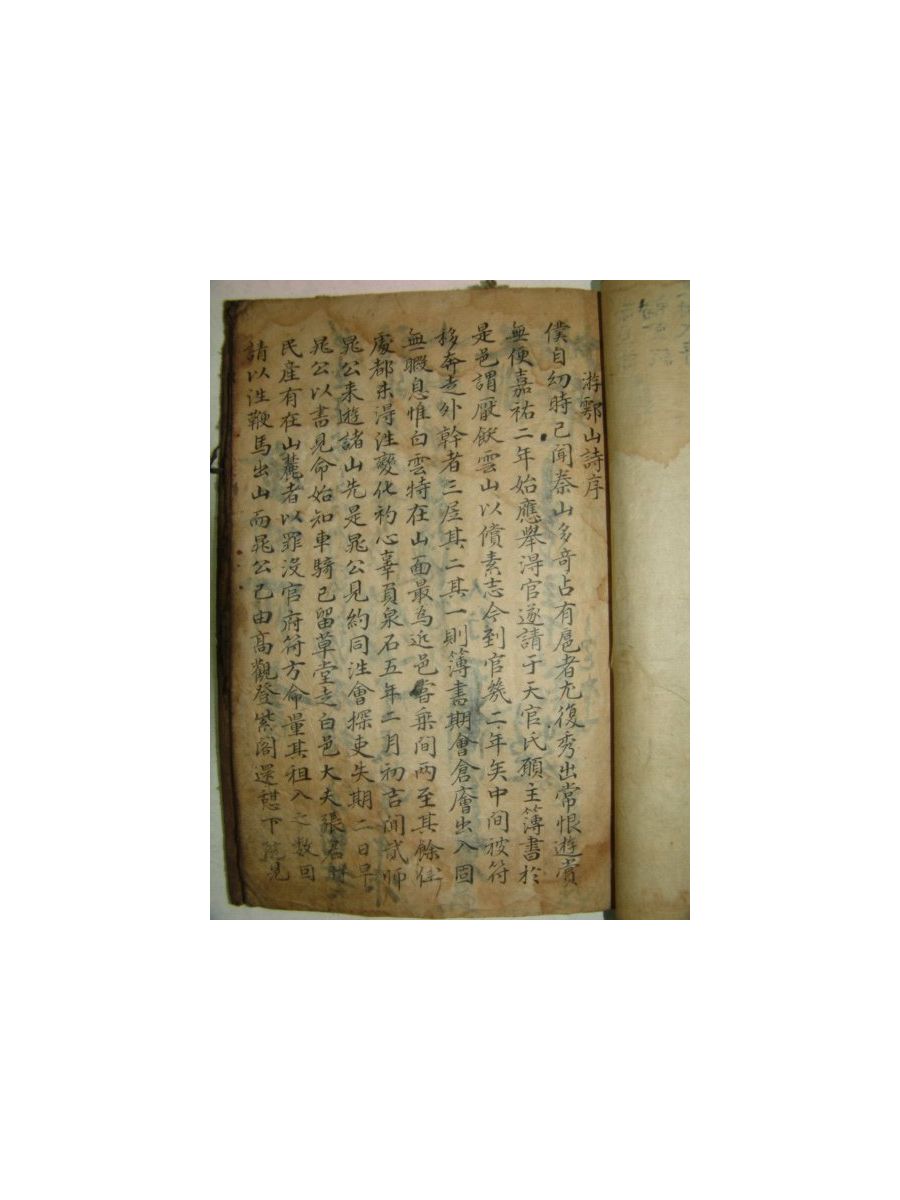 游鄠山詩序
僕自幼時已聞秦山多奇占有扈者尤復秀出常恨遊賞
無便嘉祐二年始應舉淂官遂請于天官氏願主簿書於
是邑謂厭飫雲山以償素志今到官幾二年矣中間被符
移奔走外幹者三居其二其一則簿書期會倉廥出入固
無暇息惟白雲特在山面最為近邑常乘間两至其餘
處都未淂徃變化初心辜負泉石五年二月初吉聞貳師
晁公来遊諸山先是晁公見約同徃會探吏失期二日早
晁公以書見命始知車騎已留草堂走白邑大夫張君
民産有在山麓者以罪没官府符方命量其租入之数回
請以徃鞭馬出山而晁公已由高觀登紫阁還憇下